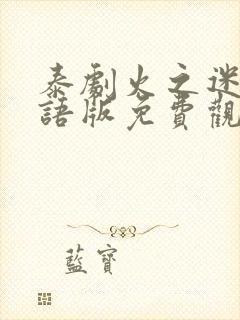 泰劇火之迷
語版免費觀
藍寶